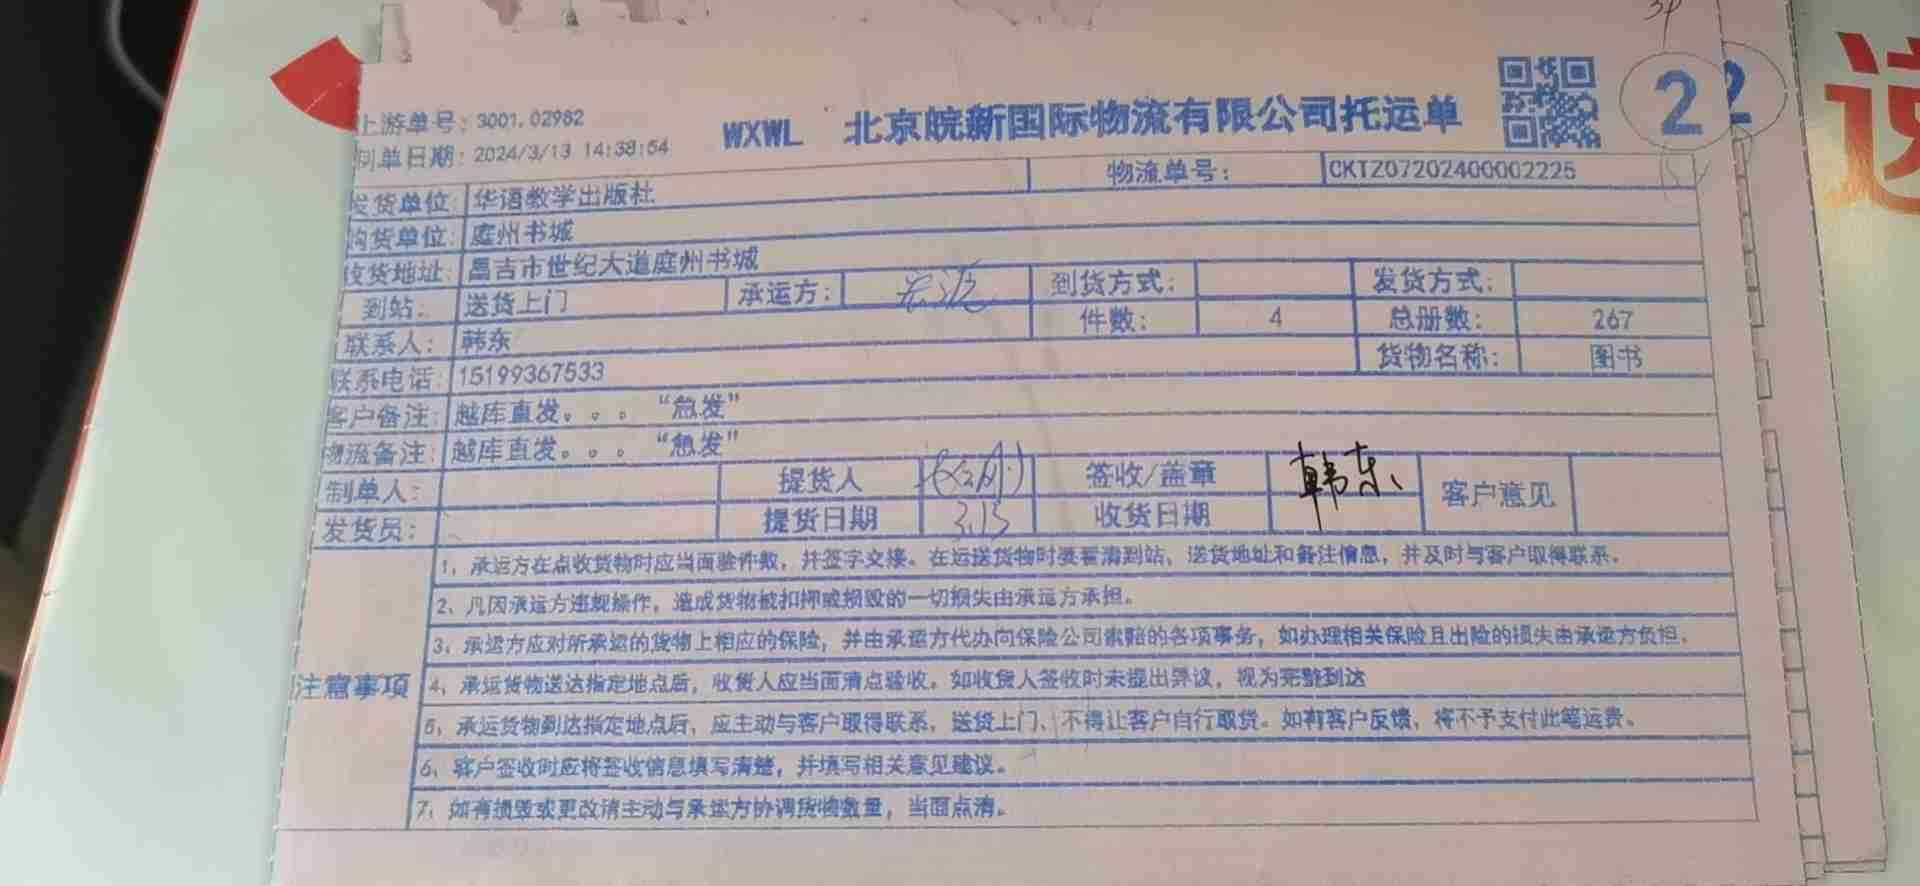 上游单号：3001.02982
制单日期：2024/3/13 14:38:54
WXWL 北京皖新国际物流有限公司托运单
2
2
物流单号： CKTZ07202400002225
发货单位：华语教学出版社
购货单位：庭州书城
收货地址：昌吉市世纪大道庭州书城
到站： 送货上门 承运方： 到货方式： 发货方式：
件数： 4 总册数： 267
联系人：韩东
货物名称： 图书
联系电话：15199367533
客户备注：越库直发。。。 “急发”
物流备注：越库直发。。。 “急发”
制单人： 提货人 签收/盖章 韩东 客户意见
发货员： 提货日期 3.15 收货日期
注意事项
1，承运方在点收货物时应当面验件数，并签字交接。在运送货物时要看清到站，送货地址和备注信息，并及时与客户取得联系。
2、凡因承运方违规操作，造成货物被扣押或损毁的一切损失由承运方承担。
3、承运方应对所承运的货物上相应的保险，并由承运方代办向保险公司索赔的各项事务，如办理相关保险且出险的损失由承运方负担。
4，承运货物送达指定地点后，收货人应当面清点验收。如收货人签收时未提出异议，视为完整到达
5，承运货物到达指定地点后，应主动与客户取得联系，送货上门、不得让客户自行取货。如有客户反馈，将不予支付此笔运费。
6、客户签收时应将签收信息填写清楚，并填写相关意见建议。
7，如有损毁或更改请主动与承运方协调货物数量，当面点清。